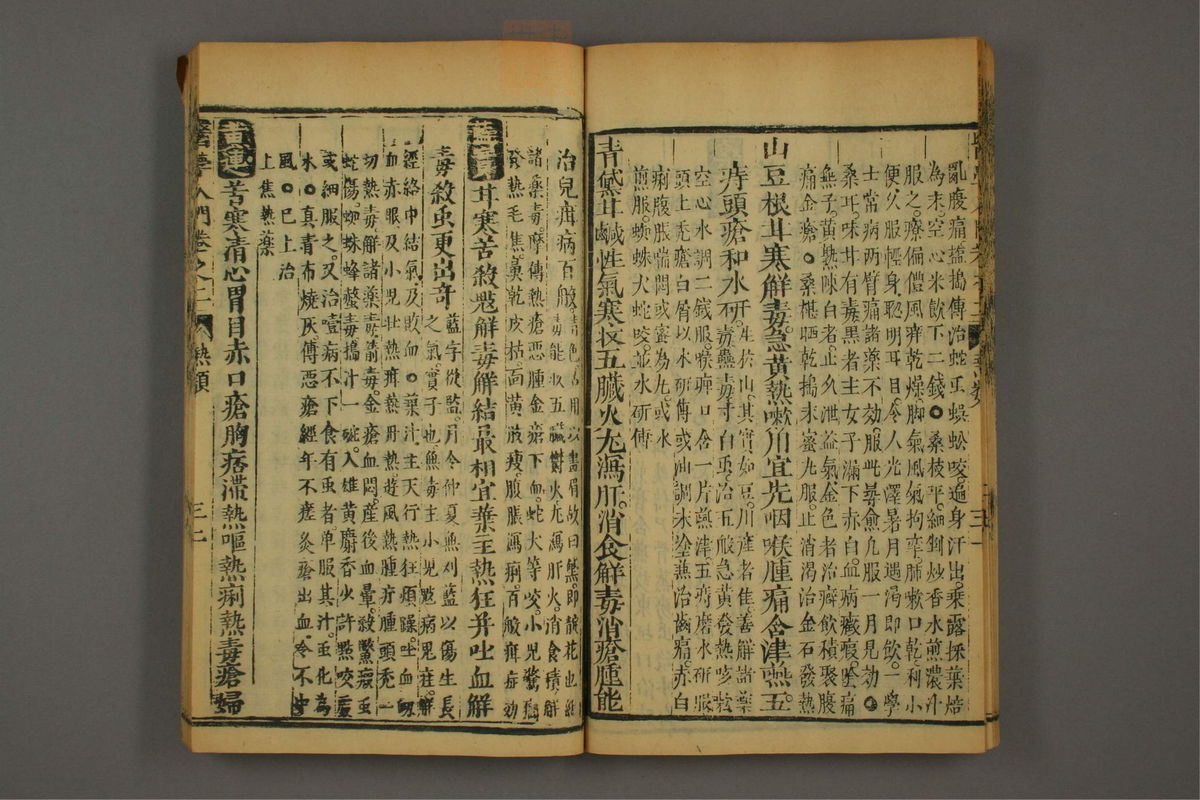 亂腹痛䀋搗傅治蛇䖝蜈蚣咬遍身汗出乘露採葉焙
為末空心米飲下二錢○桑枝平細剉炒香水煎濃汁
服之療徧體風痒乾燥脚氣風氣拘攣肺嗽口乾利小
便久服輕身聡明耳目令人光澤暑月遇渴即飲一學
士常病兩臂痛諸藥不効服此尋愈凡服一月見効○
桑耳味甘有毒黒者主女子漏下赤白血病癥瘕陰痛
無子黃熟陳白者止久泄益氣金色者治癖飲積聚腹
痛金瘡○桑椹晒乾搗末蜜丸服止消渴治金石發熱
山豆根甘寒解毒急黃熱嗽用宜先咽喉腫痛含津嚥五
痔頭瘡和水研生於山其實如豆川産者佳善解諸藥
毒蠱毒寸白䖝治五般急黃發熱咳嗽
空心水調二錢服喉痺口含一片嚥津五痔磨水研服
頭上禿瘡白屑以水研傅或油調末塗兼治齒痛赤白
痢腹脹喘悶或蜜為丸或水
煎服蜘蛛犬蛇咬並水研傅
青黛甘鹹性氣寒收五臟火尤瀉肝消食解毒消瘡腫能
治兒疳病百般
毒能收五臟鬱火尤瀉肝火消食積解
諸藥毒摩傅熱瘡惡腫金瘡下血蛇犬等咬小兒驚癎
發熱毛焦鼻乾皮枯面黃肌痩腹脹瀉痢百般疳症効
藍實甘寒苦殺䰯解毒解結最相宜葉主熱狂并吐血解
毒殺虫更出奇藍字從監月令仲夏無刈藍以傷生長
之氣實子也無毒主小兒䰯病鬼疰解
經絡中結氣及敗血○葉汁主天行熱狂煩躁吐血衂
血赤眼及小兒壯熱疳蒸丹熱遊風熱腫疔腫頭禿一
切熱毒解諸藥毒箭毒金瘡血悶産後血暈殺鱉瘕䖝
蛇傷蜘蛛蜂螫毒搗汁一碗入雄黃麝香少許點咬處
或細服之又治壹病不下食有䖝者单服其汁䖝化為
水○真青布燒灰傅惡瘡經年不瘥灸瘡出血令不中
風○巳上治
上焦熱藥
黃連苦寒清心胃目赤口瘡胸痞滯熱嘔熱痢熱毒瘡婦
醫學入門卷之二 熱類 三十二